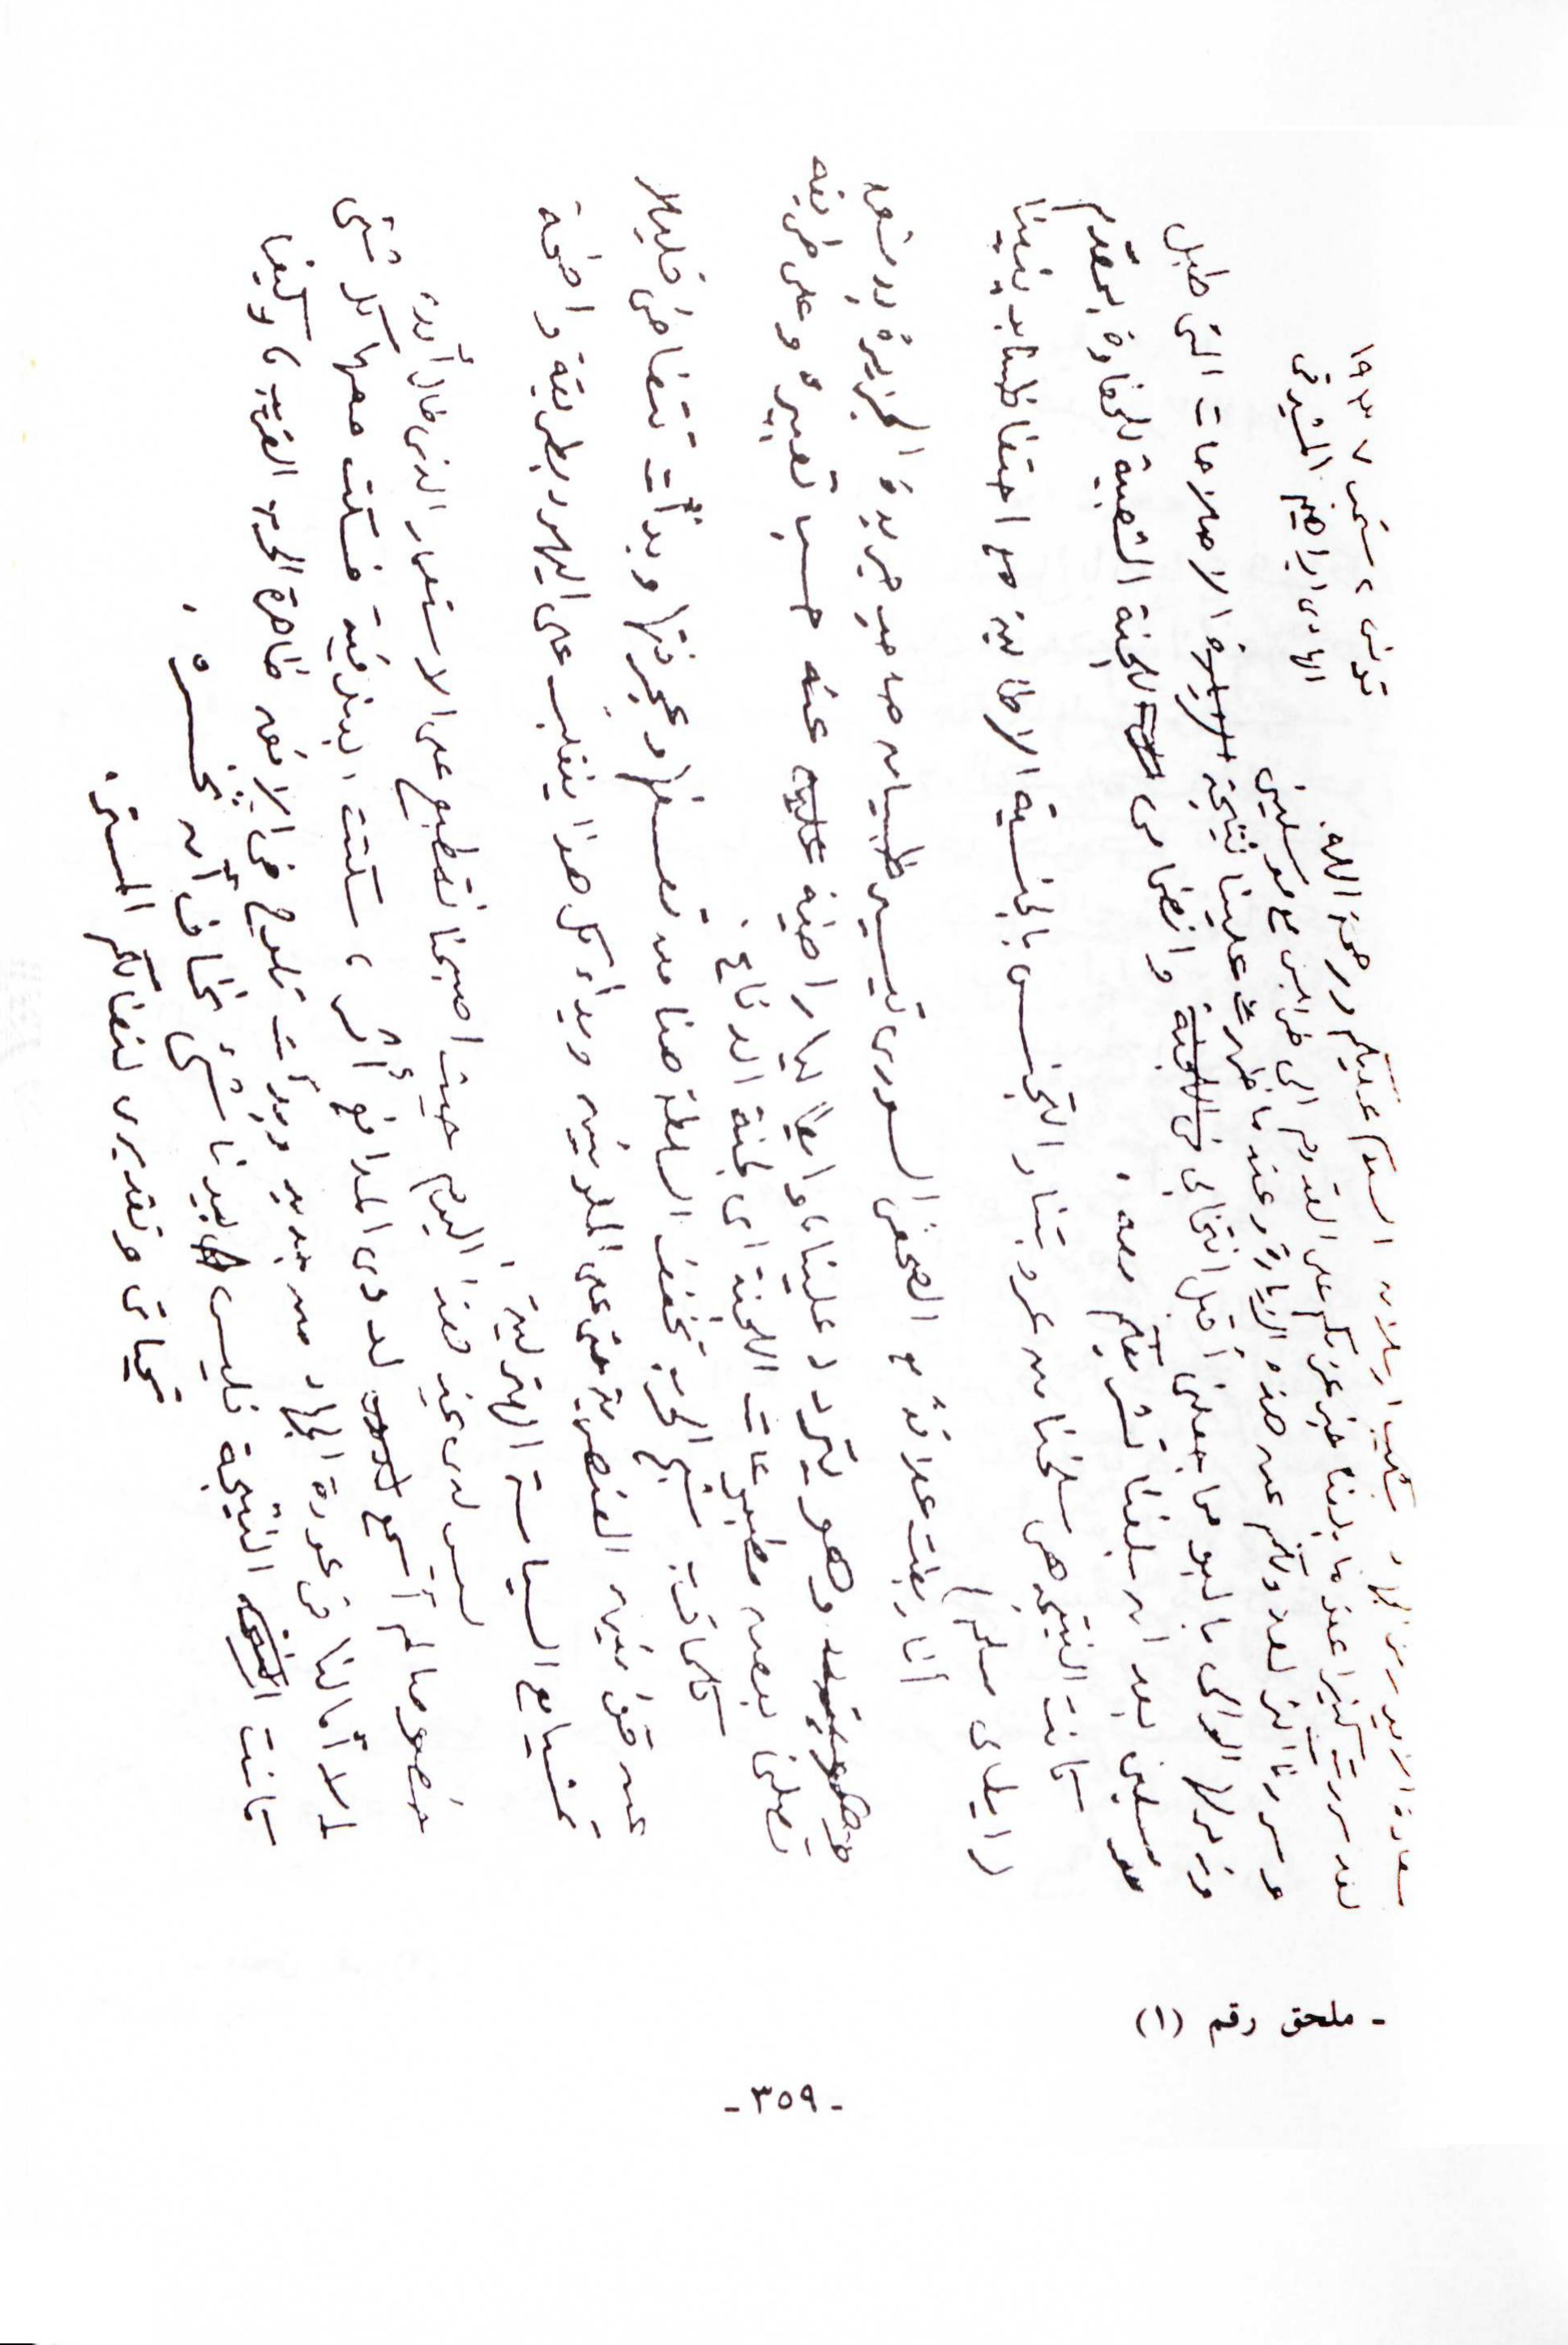 تونس ٤ سبتمبر ١٩٣٧
الهادى ابراهيم المشيرقى
سعادة الأمير رمز الجهاد شكيب ارسلان السلام عليكم ورحمة الله.
لقد سررت كثيرا عندما بلغنا خبر عزمكم على القدوم الى طرابلس مع موسلينى
وسررنا اكثر لعدولكم عن هذه الزيارة وعندما ظهرت علينا نتيجة الاصلاحات التى طبل
وزمر لها الوالى بالبو مما جعلنى أقبل انتخابى وانضمامى للجنة الشعبية للحفاوة بمقدم
موسلينى بعد ان بلغنا تشريفكم معه.
كانت النتيجة هى سلخنا من عروبتنا والتجنس بالجنسية الايطالية مع احتفاظنا بديننا
(ايطالى مسلم)
أنا ربطت علاقة مع الصحفى السورى تيسير ظبيان صاحب جريدة الجزيرة
وهو يتردد علينا وليبيا راضية عنه حسب تعبيره وعلى طريقه
تصلنى بعض مطبوعات اللجنة اى لجنة الدفاع.
كلما قرب شبح الحرب تخفف السلطة هنا من تعسفها وعجرفتها وبدأت تتغاضى قليلا
عن قوانين العنصرية حتى على الملونين وبدأ كل هذا ينقلب على اليهود بطريقة واضحة
تمشيا مع السياسة الهتلرية.
ليس لدى خبر هذا اليوم حيث اصبحنا نطبع على الاستعمار الذى طال أمده
خصوصا لم أسمع لدوى المدافع أثر، سكتت البندقية فسكت معها كل شئ
الا أمالنا فى عودة الجهاد من جديد وبدأت تلوح فى الافق ظاهرة الحرب القريبة وكيفما
كانت النتيجة فليس بيدنا شئ نخاف أن نخسره.
تحياتى وتقديرى لنضالكم المستمر.
- ملحق رقم (١)
- ٣٥٩ -